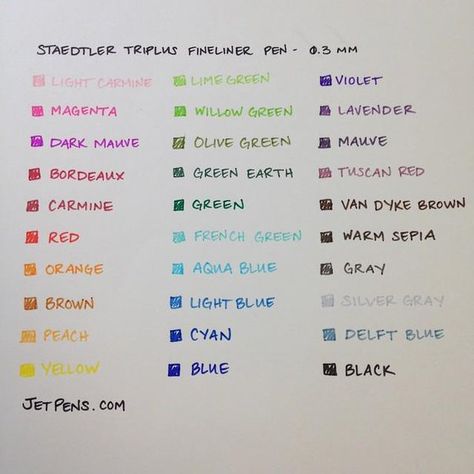 STAEDTLER TRIPLUS FINELINER PEN - 0.3 MM
LIGHT CARMINE
MAGENTA
DARK MAUVE
BORDEAUX
CARMINE
RED
ORANGE
BROWN
PEACH
YELLOW
LIME GREEN
WILLOW GREEN
OLIVE GREEN
GREEN EARTH
GREEN
FRENCH GREEN
AQUA BLUE
LIGHT BLUE
CYAN
BLUE
VIOLET
LAVENDER
MAUVE
TUSCAN RED
VAN DYKE BROWN
WARM SEPIA
GRAY
SILVER GRAY
DELFT BLUE
BLACK
JETPENS.COM